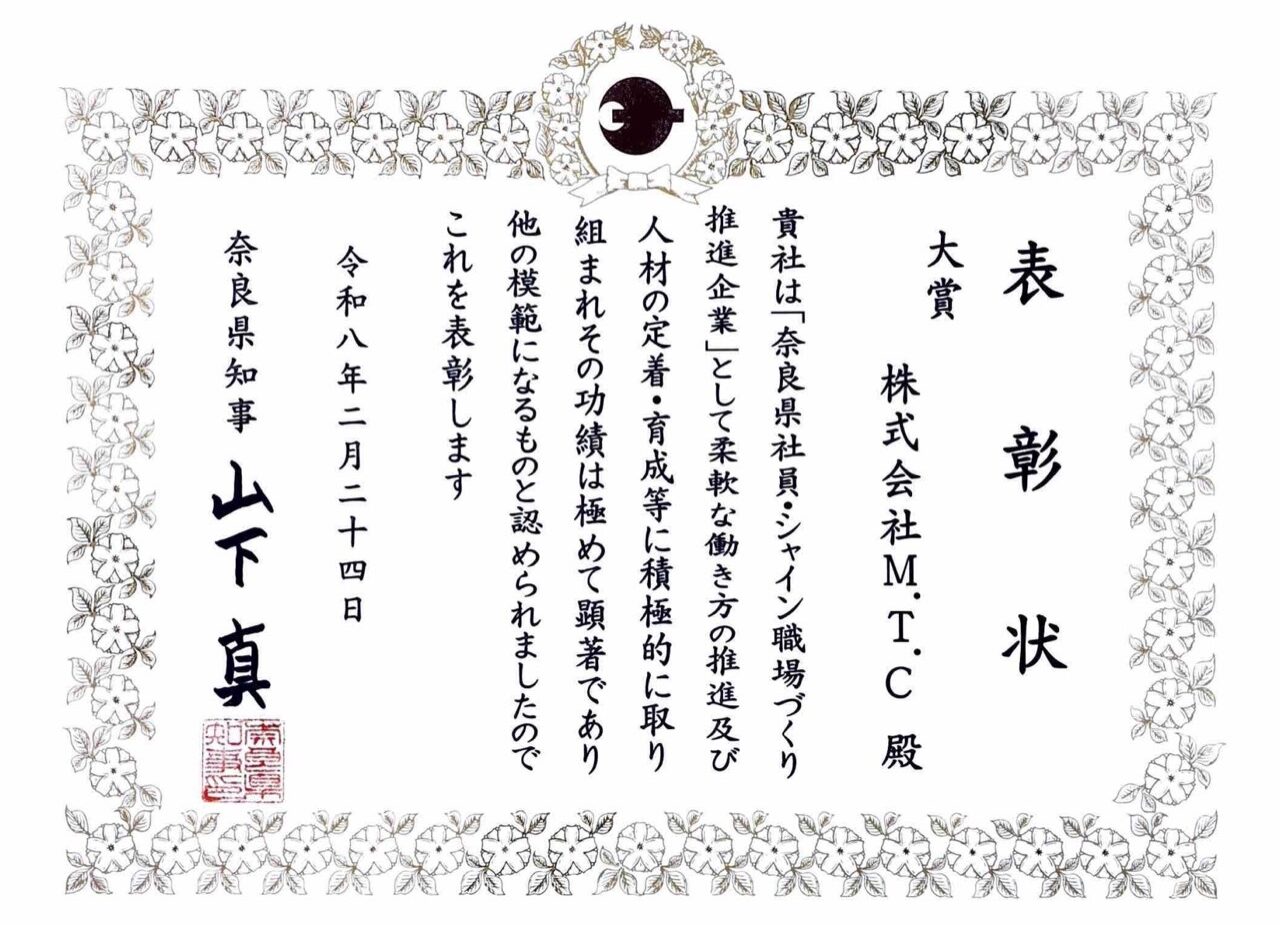 表彰状
大賞
株式会社M.T.C 殿
貴社は「奈良県社員・シャイン職場づくり
推進企業」として柔軟な働き方の推進及び
人材の定着・育成等に積極的に取り
組まれその功績は極めて顕著であり
他の模範になるものと認められましたので
これを表彰します
令和八年二月二十四日
奈良県知事 山下真
奈良県
知事印